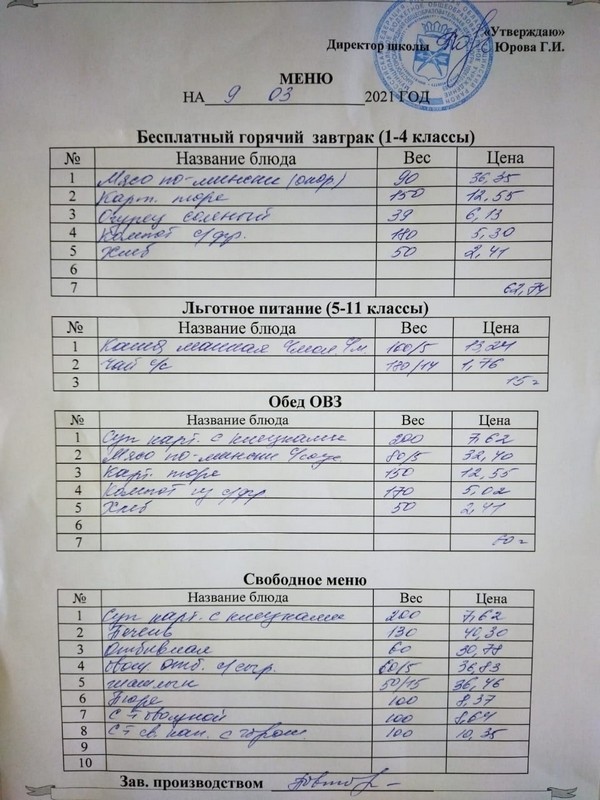 «Утверждаю»
Директор школы Юрова Г.И.
МЕНЮ
НА 9 03 2021 ГОД
Бесплатный горячий завтрак (1-4 классы)
№ Название блюда Вес Цена
1 Мясо по-мински (окор) 90 36,35
2 Карт. пюре 150 12,55
3 Огурец соленый 39 6,13
4 Компот с/фр. 180 5,30
5 Хлеб 50 2,41
6
7 62,74
Льготное питание (5-11 классы)
№ Название блюда Вес Цена
1 Каша манная 100/5 13,24
2 Чай с/с 180/14 1,76
3 15=
Обед ОВЗ
№ Название блюда Вес Цена
1 Суп карт. с клецками 200 7,62
2 Мясо по-мински 80/5 32,40
3 Карт. пюре 150 12,55
4 Компот из с/фр 170 5,02
5 Хлеб 50 2,41
6
7 60=
Свободное меню
№ Название блюда Вес Цена
1 Суп карт. с клецками 200 7,62
2 130 40,30
3 Отбивная 60 30,78
4 отб. с/сыр. 60/5 36,83
5 шашлык 50/15 36,46
6 Пюре 100 8,37
7 100 8,64
8 100 10,35
9
10
Зав. производством